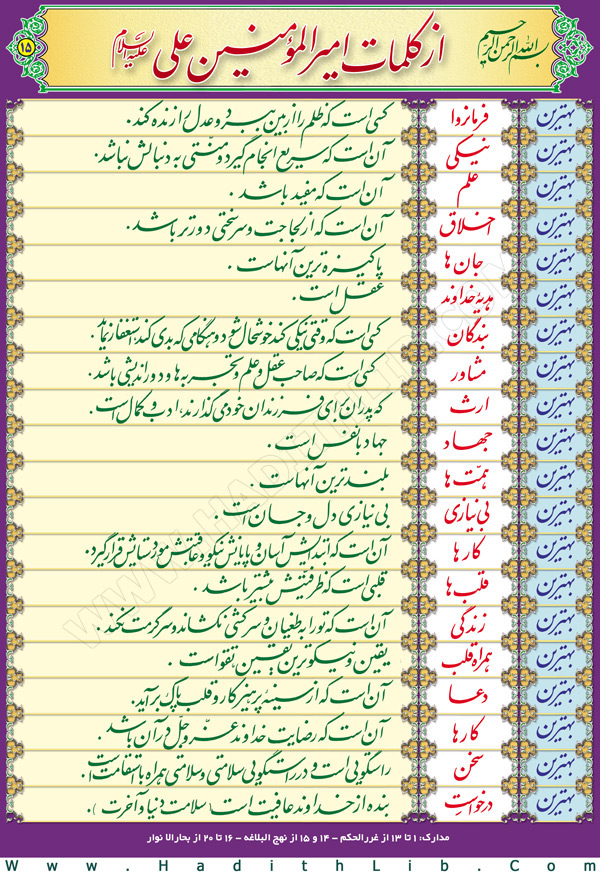 بسم الله الرحمن الرحیم
از کلمات امیرالمؤمنین علی علیه السلام
۱۵
بهترین فرمانروا کسی است که ظلم را از بین ببرد و عدل را زنده کند.
بهترین نیکی آن است که سریع انجام گیرد و منّتی به دنبالش نباشد.
بهترین علم آن است که مفید باشد.
بهترین اخلاق آن است که از لجاجت و سرسختی دورتر باشد.
بهترین جان ها پاکیزه ترین آنهاست.
بهترین هدیهٔ خداوند عقل است.
بهترین بندگان کسی است که وقتی نیکی کند خوشحال شود و هنگامی که بدی کند، استغفار نماید.
بهترین مشاور کسی است که صاحب عقل و علم و تجربه ها و دوراندیشی باشد.
بهترین ارث که پدران برای فرزندان خود می گذارند، ادب و کمال است.
بهترین جهاد جهاد با نفس است.
بهترین همّت ها بلند ترین آنهاست.
بهترین بی نیازی بی نیازی دل و جان است.
بهترین کارها آن است که ابتدایش آسان و پایانش نیکو و عاقبتش مورد ستایش قرار گیرد.
بهترین قلب ها قلبی است که ظرفیتش بیشتر باشد.
بهترین زندگی آن است که تو را به طغیان و سرکشی نکشاند و سرگرمت نکند.
بهترین همراه قلب یقین و نیکوترین یقین تقوا است.
بهترین دعا آن است که از سینهٔ پرهیزکار و قلب پاک برآید.
بهترین کارها آن است که رضایت خداوند عزّوجلّ در آن باشد.
بهترین سخن راستگویی است و در راستگویی سلامتی و سلامتی همراه با استقامت است.
بهترین درخواستِ بنده از خداوند عافیت است (سلامت دنیا و آخرت).
مدارک: ۱ تا ۱۳ از غررالحکم - ۱۴ و ۱۵ از نهج البلاغه - ۱۶ تا ۲۰ از بحارالا نوار
Www.HadithLib.Com
WWW.HADITHLIB.COM